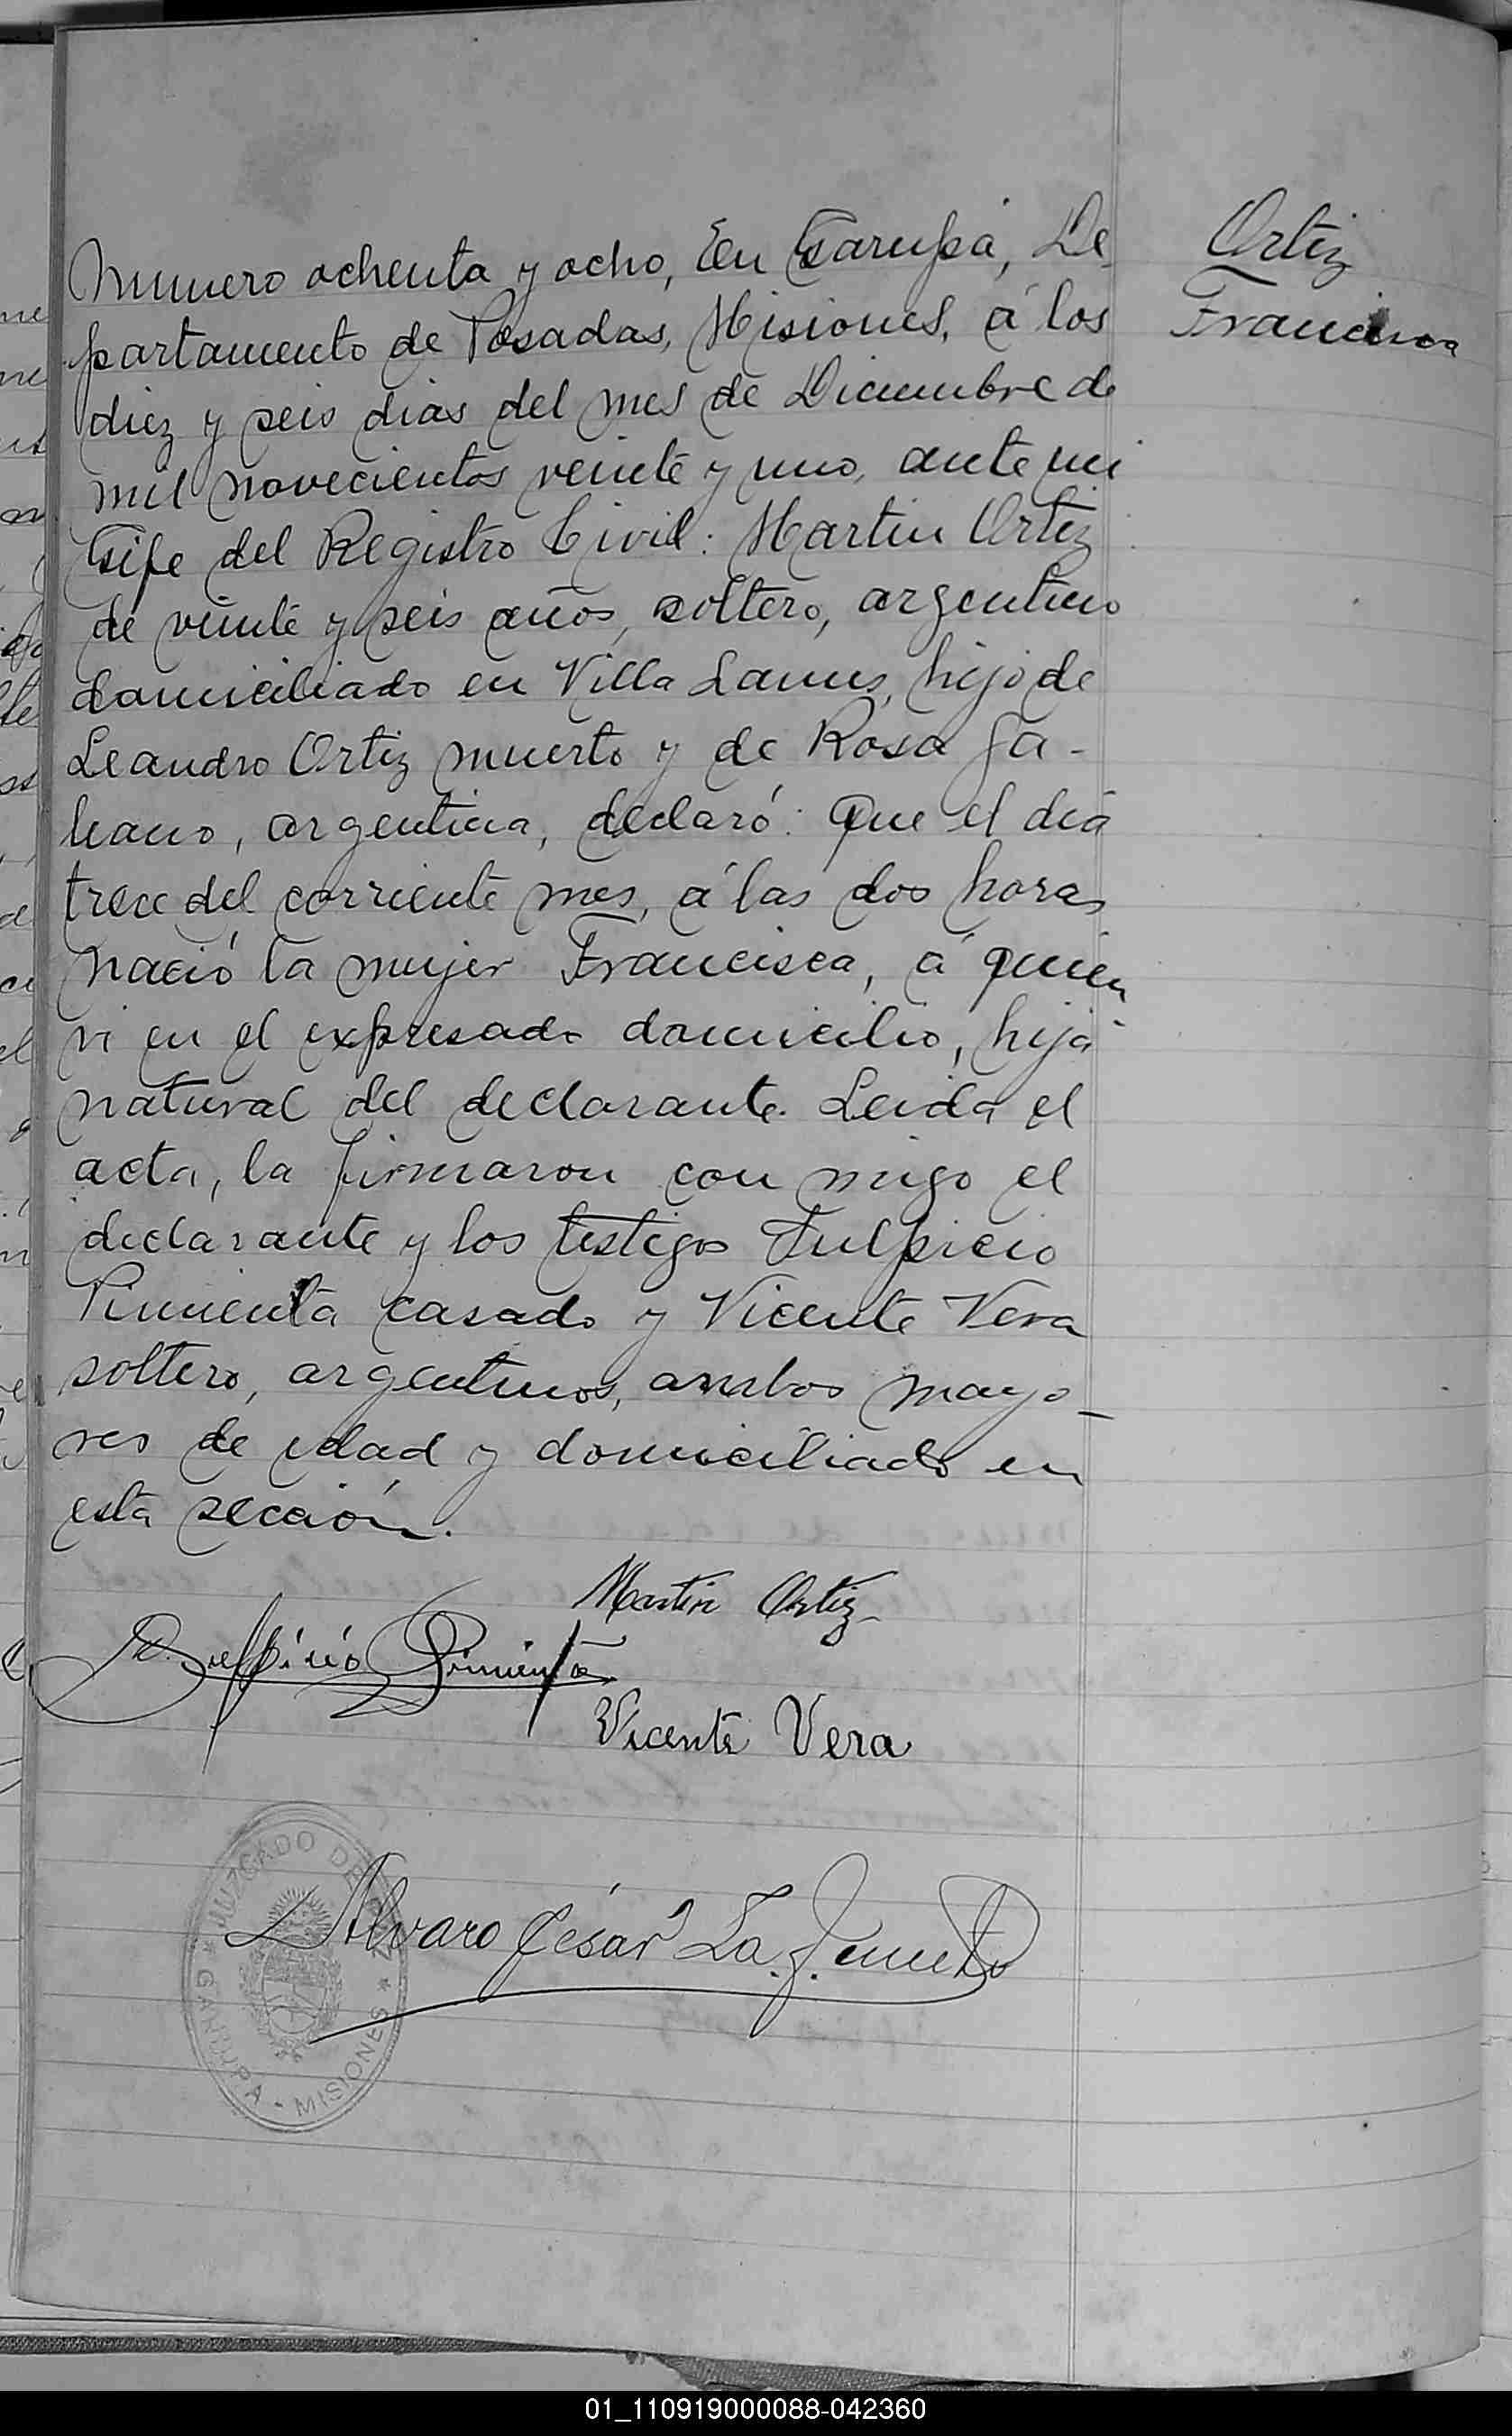 Numero ochenta y ocho, En Garupá, De-
partamento de Posadas, Misiones, á los
diez y seis dias del mes de Diciembre de
mil novecientos veinte y uno, ante mi
Gefe del Registro Civil: Martin Ortiz
de veinte y seis años, soltero, argentino
domiciliado en Villa Lanus, hijo de
Leandro Ortiz muerto y de Rosa Ga-
leano, argentina, declaró: Que el dia
trece del corriente mes, á las dos horas
nació la mujer Francisca, á quien
vi en el expresado domicilio, hija
natural del declarante. Leida el
acta, la firmaron con migo el
declarante y los testigos Sulpicio
Pimienta casado y Vicente Vera
soltero, argentinos, ambos mayo-
res de edad y domiciliado en
esta sección.
Ortiz
Francisca
Martin Ortiz
Sulpicio Pimienta
Vicente Vera
JUZGADO DE PAZ
GARUPA - MISIONES
Alvaro César La
01_110919000088-042360